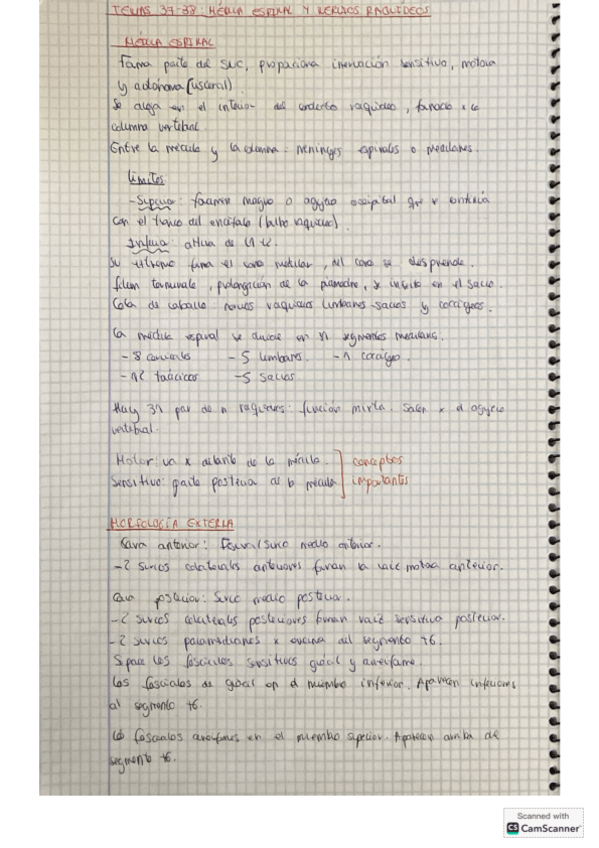 TEMAS 37-38: MÉDULA ESPINAL Y NERVIOS RAQUÍDEOS
MÉDULA ESPINAL
Forma parte del SNC, proporciona inervación sensitiva, motora
y autónoma (visceral)
Se aloja en el interior del conducto raquídeo, formado x la
columna vertebral.
Entre la médula y la columna: meninges espinales o medulares.
Límites
- Superior: foramen magno o agujero occipital que continúa
con el tronco del encéfalo (bulbo raquídeo).
Inferior: altura de L1-L2.
Su extremo forma el cono medular, del cono se desprende
filum terminale, prolongación de la piamadre, se inserta en el sacro.
Cola de caballo: nervios raquídeos lumbares-sacros y coccígeos.
La médula espinal se divide en 31 segmentos medulares.
- 8 cervicales - 5 lumbares. - 1 coccígeo.
- 12 torácicos - 5 sacros
Hay 31 par de n raquídeos: función mixta. Salen x el agujero
vertebral.
Motor: va x delante de la médula.
Sensitivo: parte posterior de la médula
conceptos
importantes
MORFOLOGÍA EXTERNA
Cara anterior: Fisura/surco medio anterior.
- 2 surcos colaterales anteriores forman la raíz motora anterior.
Cara posterior: Surco medio posterior.
- 2 surcos colaterales posteriores forman raíz sensitiva posterior.
- 2 surcos paramedianos x encima del segmento t6.
Separa los fascículos sensitivos grácil y cuneiforme.
Los fascículos de grácil en el miembro inferior. Aparecen inferiores
al segmento t6.
Los fascículos cuneiformes en el miembro superior. Aparecen arriba de
segmento t6.
Scanned with
CS CamScanner